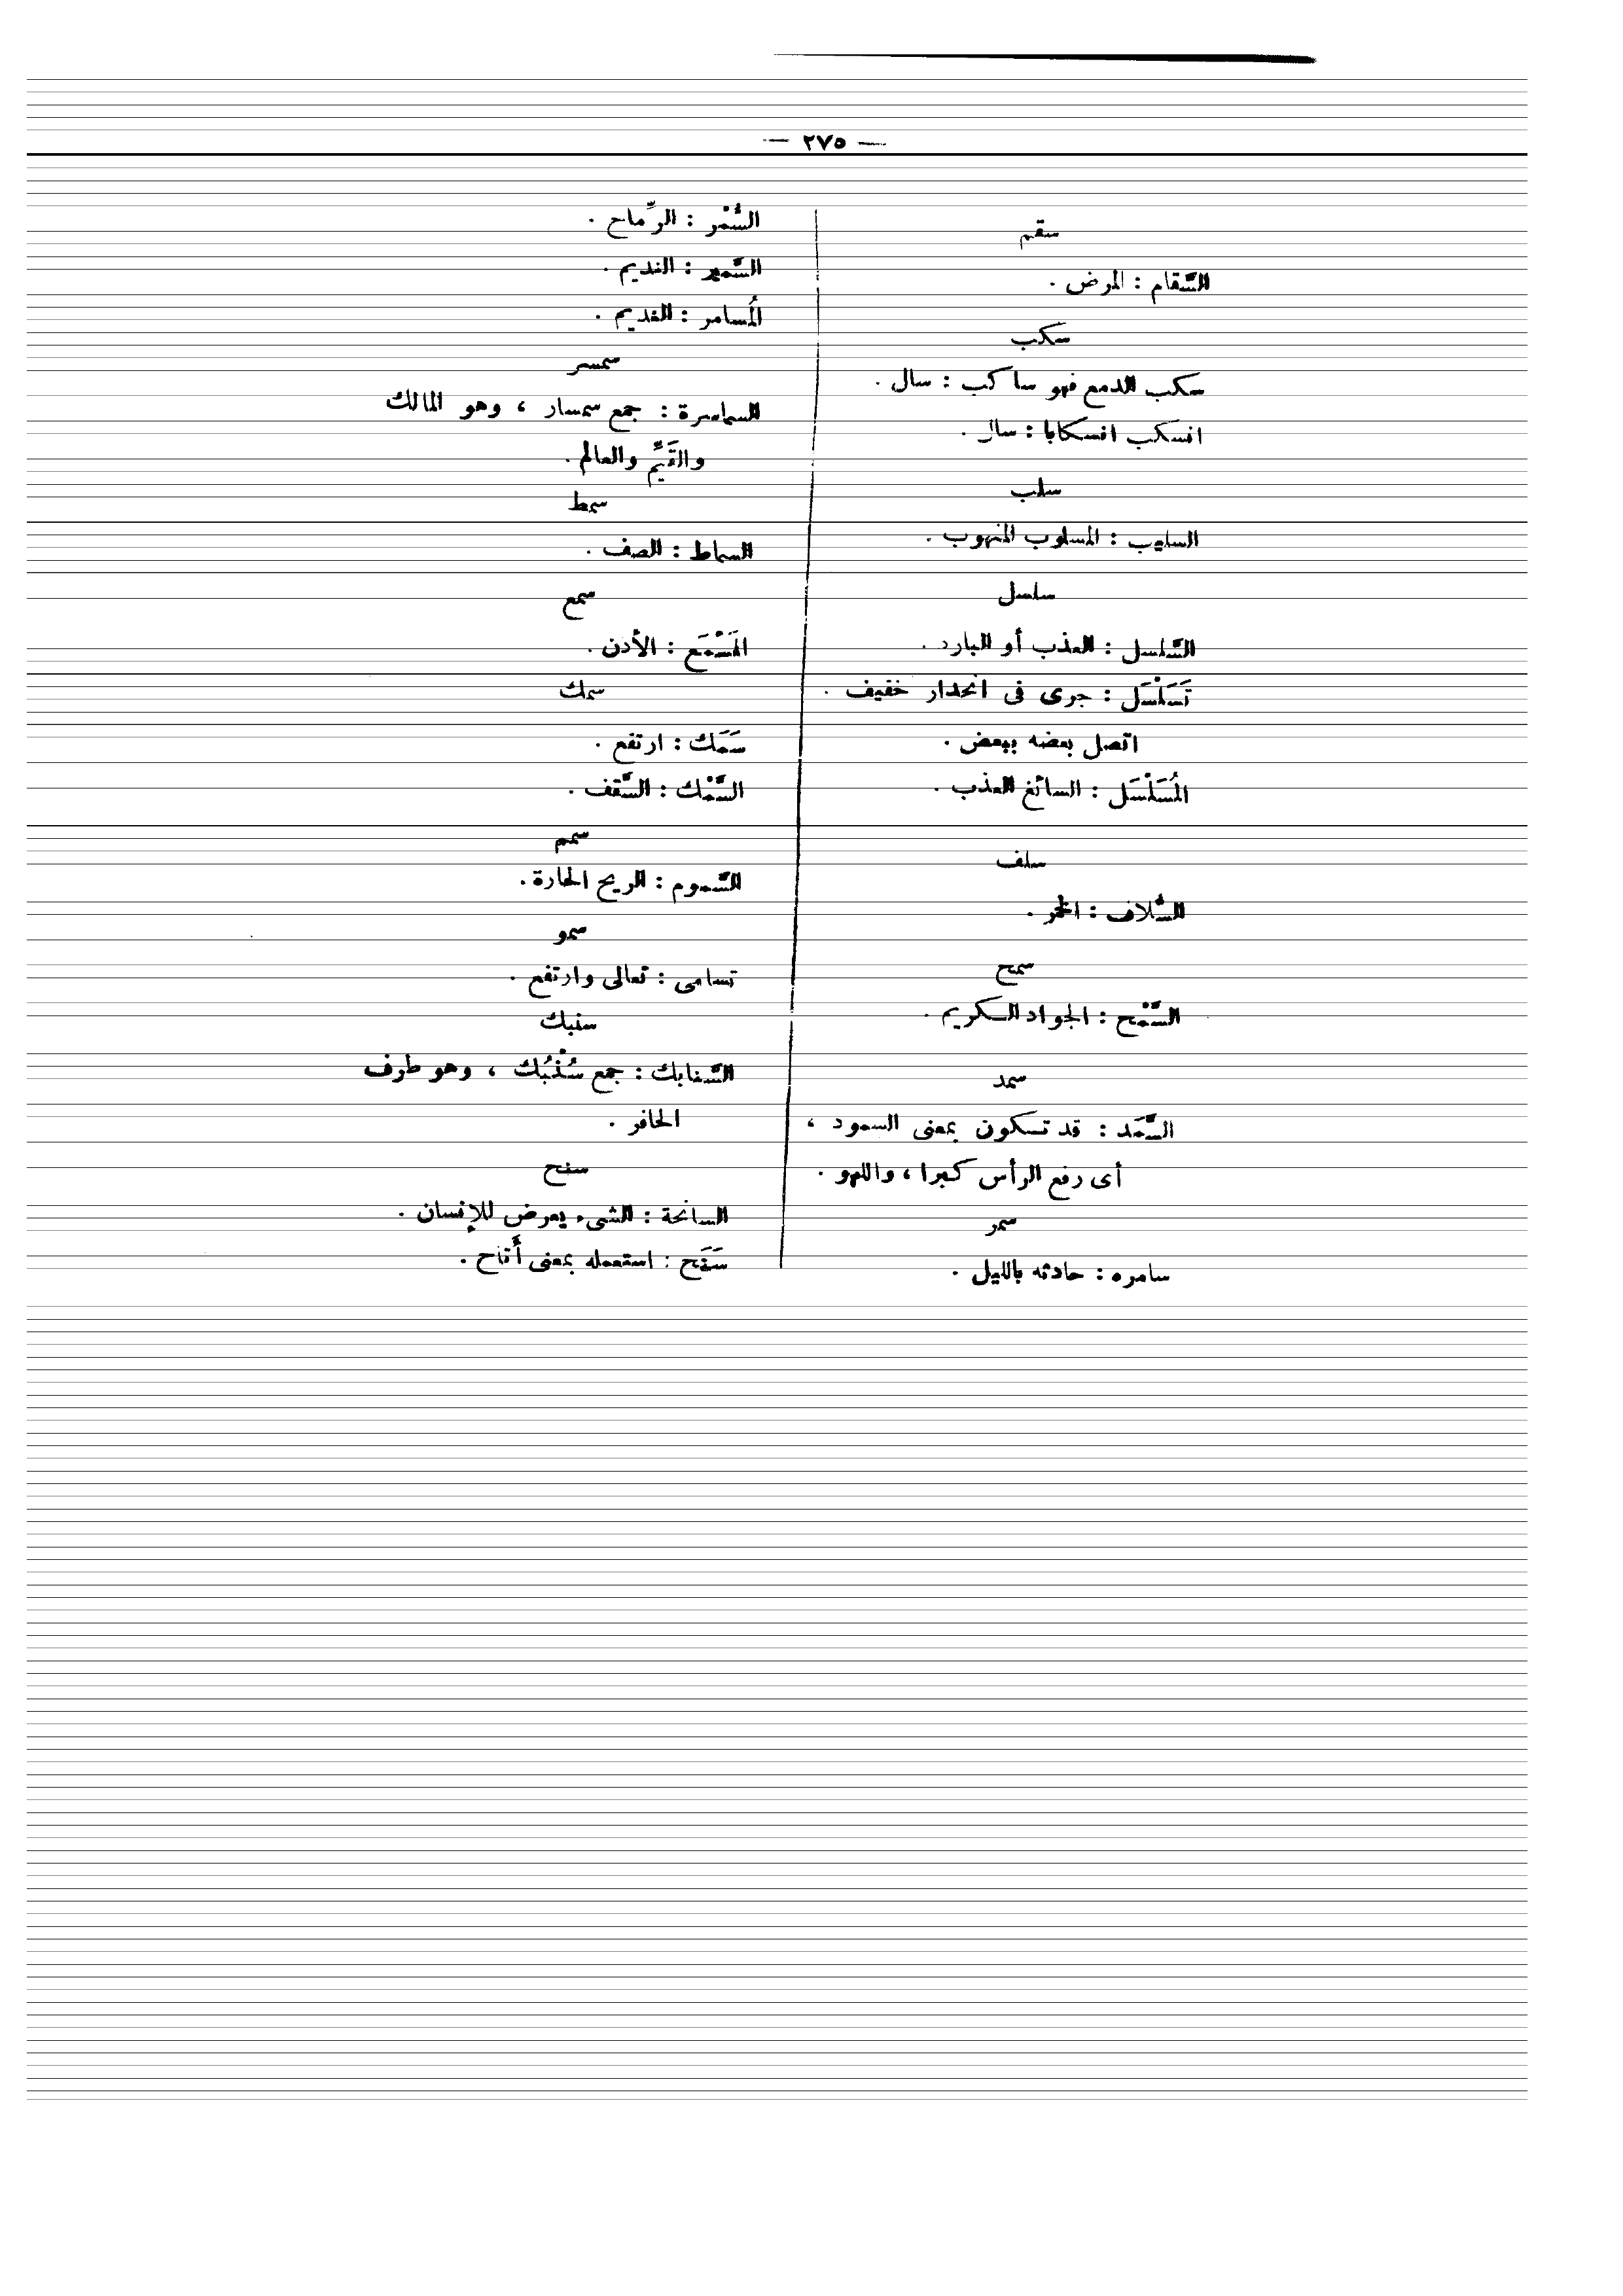 — ٢٧٥ —
سقم
السَّقام : المرض .
سكب
سكب الدمع فهو ساكب : سال .
انسكب انسكابا : سال .
سلب
السليب : المسلوب المنهوب .
سلسل
السَّلسل : العذب أو البارد .
تَسَلْسَل : جرى فى انحدار خفيف .
اتصل بعضه ببعض .
المُسَلْسَل : السائغ العذب .
سلف
السُّلاف : الخمر .
سمح
السَّمْح : الجواد الكريم .
سمد
السَّمَد : قد تكون بمعنى السمود ،
أى رفع الرأس كبرا ، واللهو .
سمر
سامره : حادثه بالليل .
السُّمْر : الرِّماح .
السَّمير : النديم .
المُسامر : النديم .
سمسر
السماسرة : جمع سمسار ، وهو المالك
والقَيِّم والعالم .
سمط
السماط : الصف .
سمع
المَسْمَع : الأذن .
سمك
سَمَك : ارتفع .
السَّمْك : السَّقف .
سمم
السَّموم : الريح الحارة .
سمو
تسامى : تعالى وارتفع .
سنبك
السَّنابك : جمع سُنْبُك ، وهو طرف
الحافر .
سنح
السانحة : الشىء يعرض للإنسان .
سَنَح : استعمله بمعنى أَتاح .